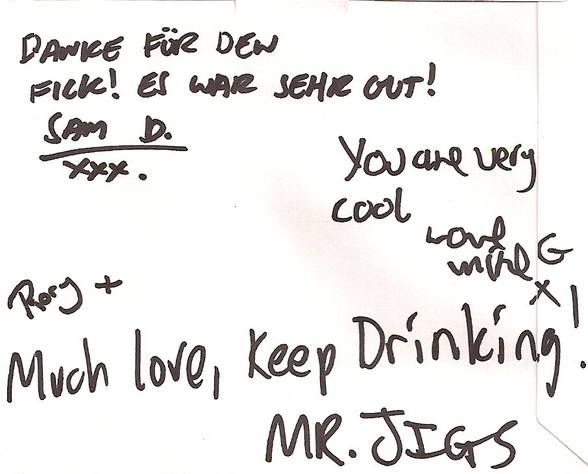 DANKE FÜR DEN
FICK! ES WAR SEHR GUT!
SAM D.
xxx.
You are very
cool
Love
Mike G
x
Rory +
Much love, Keep Drinking!
MR. JIGS